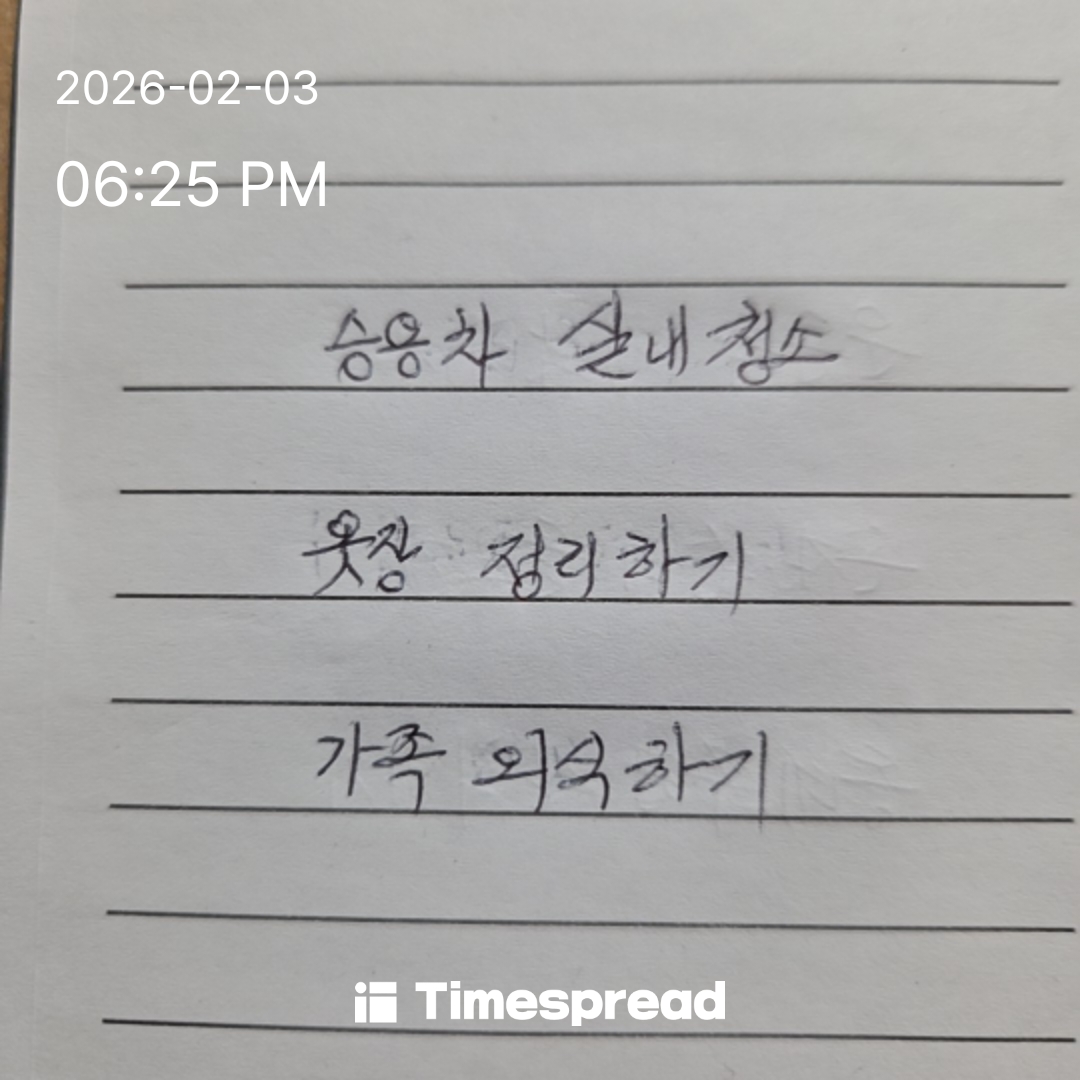 2026-02-03
06:25 PM
승용차 실내청소
옷장 정리하기
가족 외식하기
Timespread